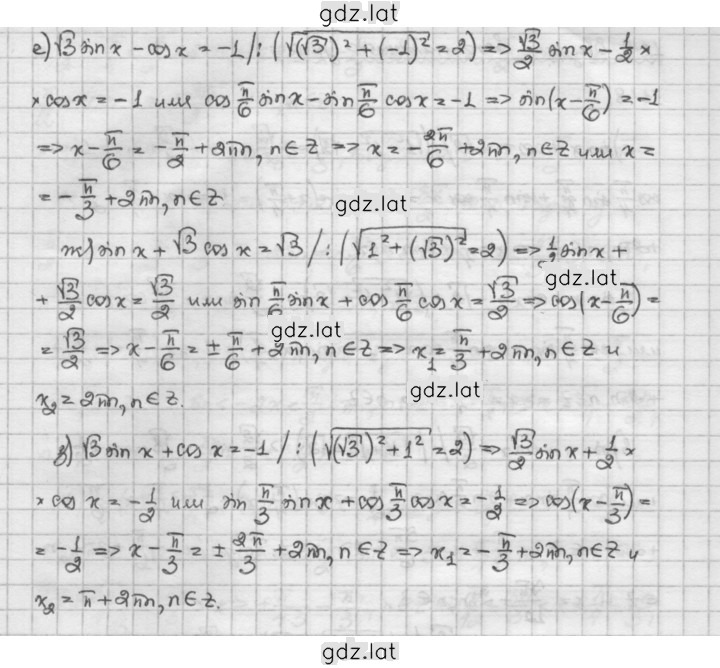 gdz.lat
е) √3 sin x - cos x = -1 /: (√((√3)² + (-1)²) = 2) => √3/2 sin x - 1/2 ×
× cos x = -1 или cos π/6 sin x - sin π/6 cos x = -1 => sin(x - π/6) = -1
=> x - π/6 = -π/2 + 2πn, n ∈ Z => x = -2π/6 + 2πn, n ∈ Z или x =
= -π/3 + 2πn, n ∈ Z
gdz.lat
ж) sin x + √3 cos x = √3 /: (√(1² + (√3)²) = 2) => 1/2 sin x +
gdz.lat
+ √3/2 cos x = √3/2 или sin π/6 sin x + cos π/6 cos x = √3/2 => cos(x - π/6) =
gdz.lat
= √3/2 => x - π/6 = ± π/6 + 2πn, n ∈ Z => x₁ = π/3 + 2πn, n ∈ Z и
gdz.lat
x₂ = 2πn, n ∈ Z.
з) √3 sin x + cos x = -1 /: (√((√3)² + 1²) = 2) => √3/2 sin x + 1/2 ×
× cos x = -1/2 или sin π/3 sin x + cos π/3 cos x = -1/2 => cos(x - π/3) =
= -1/2 => x - π/3 = ± 2π/3 + 2πn, n ∈ Z => x₁ = -π/3 + 2πn, n ∈ Z и
x₂ = π + 2πn, n ∈ Z.
gdz.lat